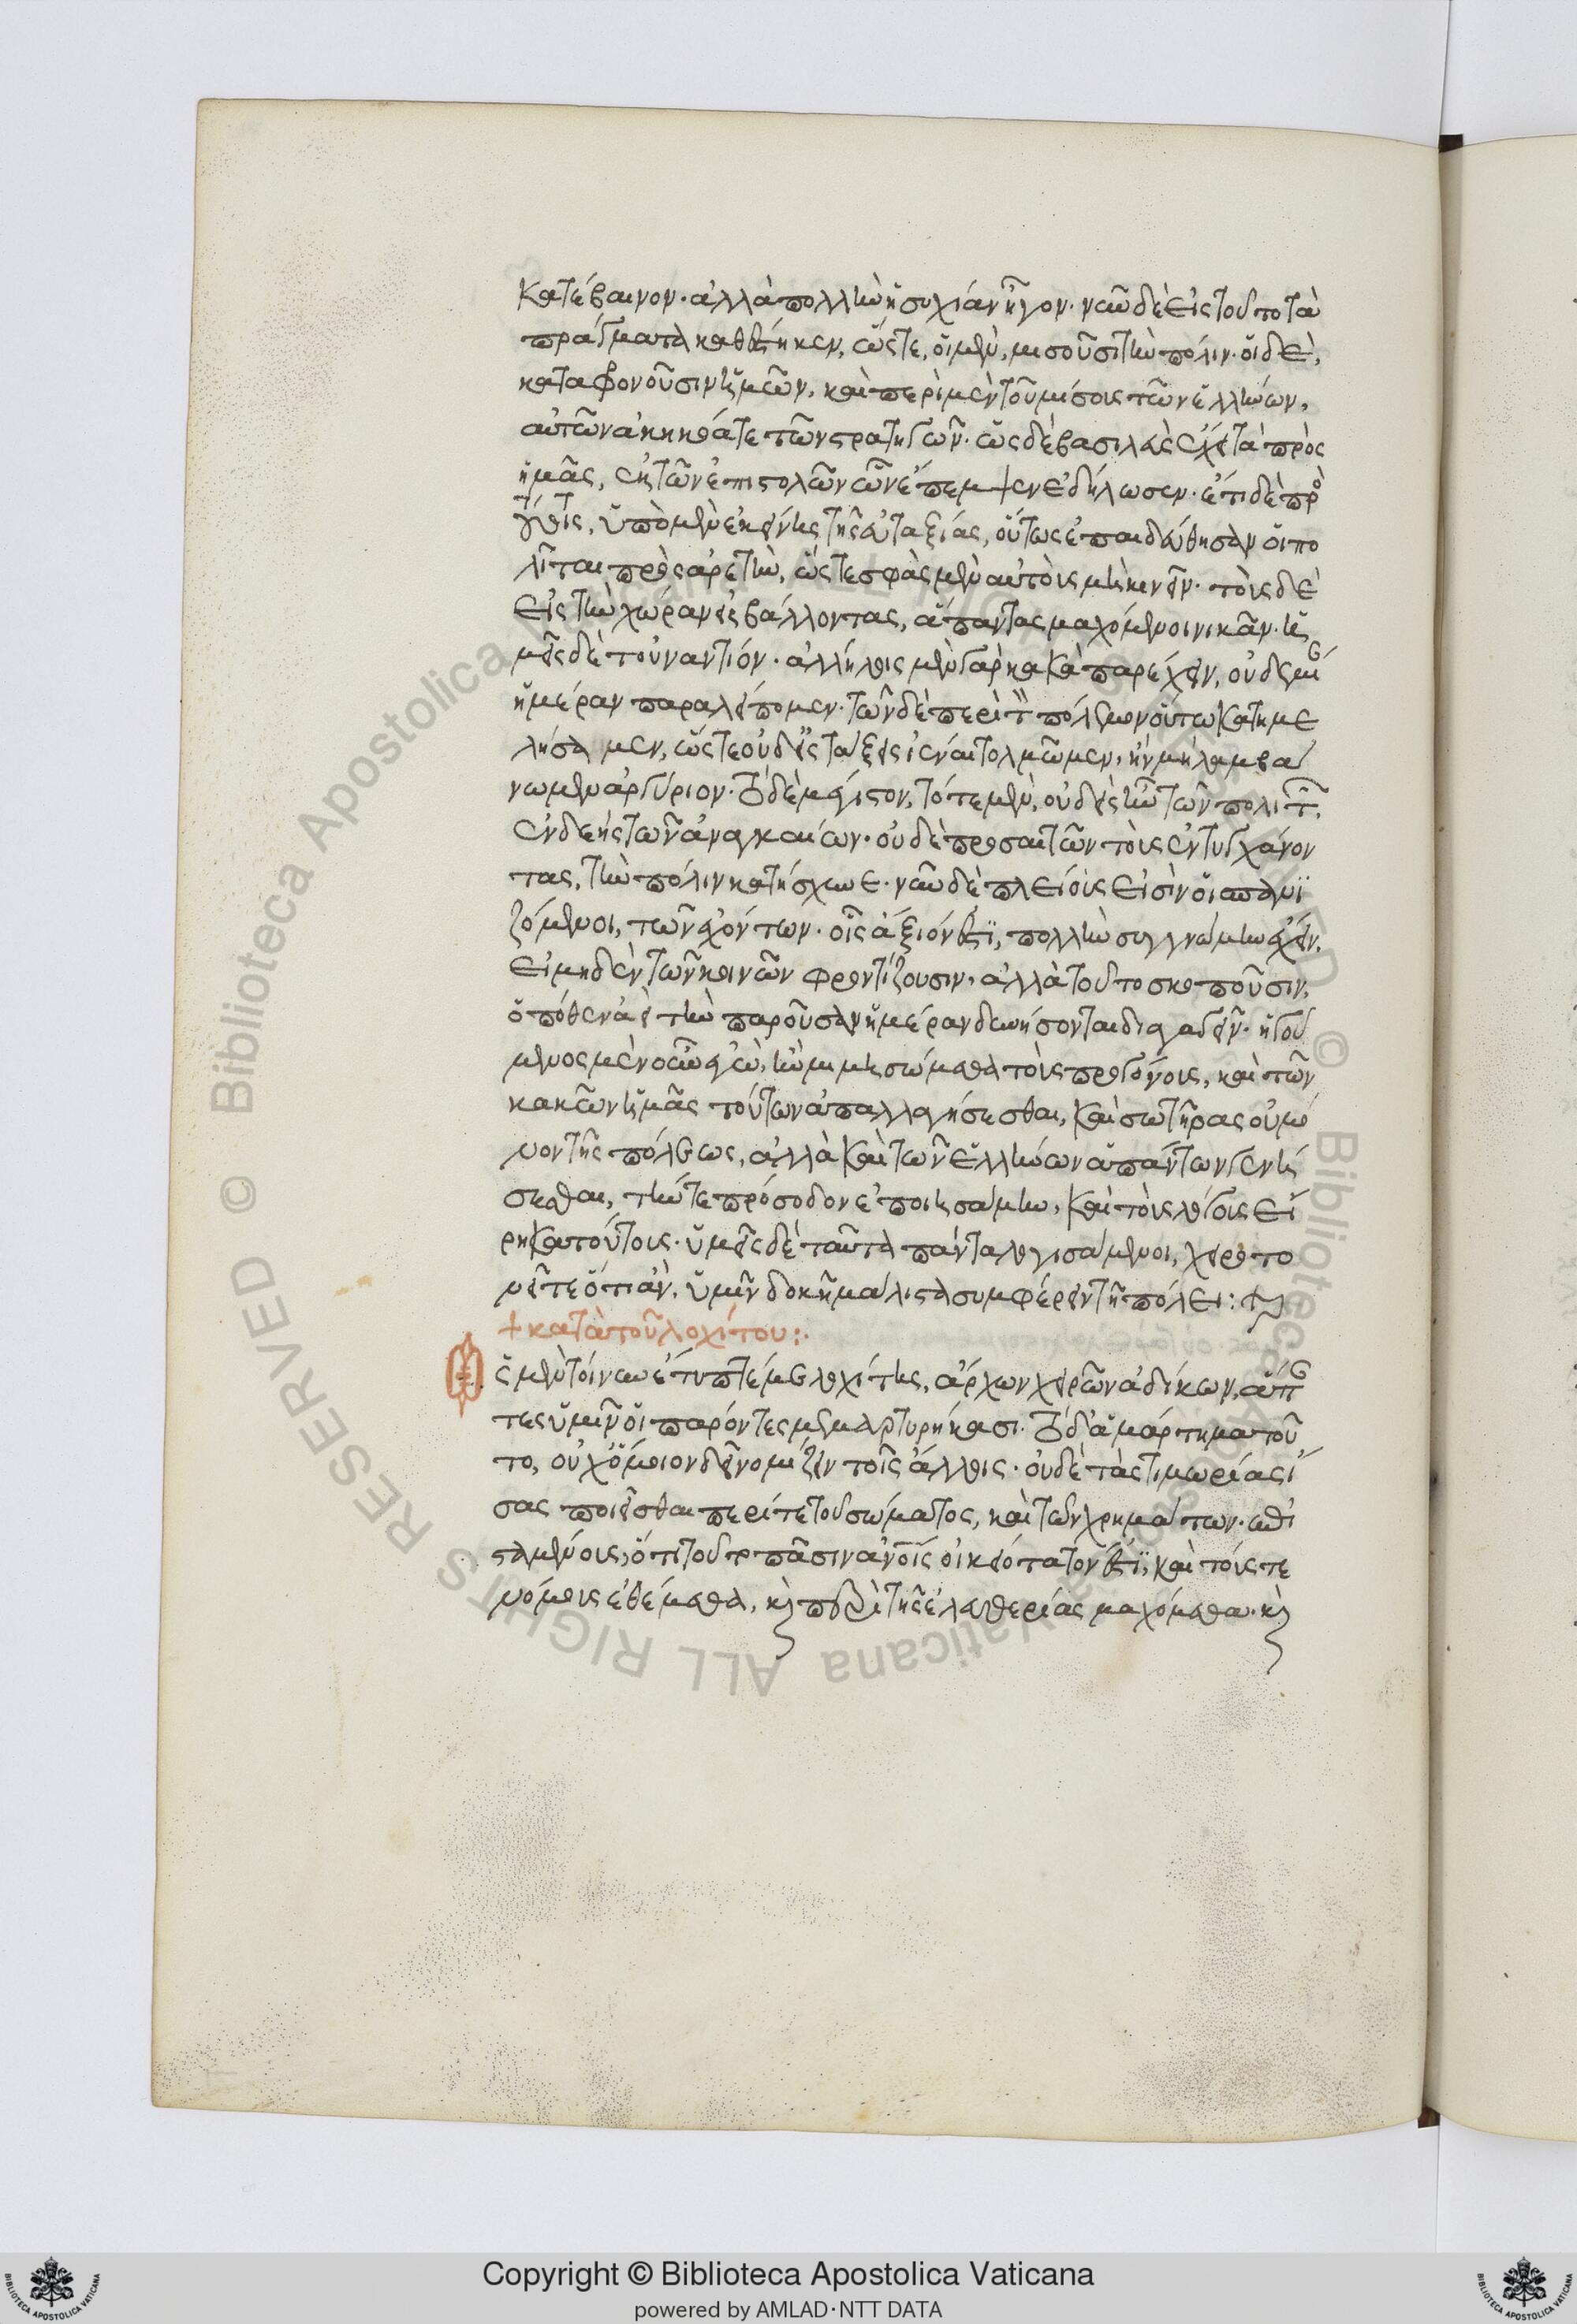 κατέβαινον· ἀλλὰ πολλὴν ἡσυχίαν ἦγον· νῦν δὲ εἰς τοῦτο τὰ
πράγματα καθέστηκεν, ὥστε, οἱ μὲν, μισοῦσι τὴν πόλιν· οἱ δὲ,
καταφρονοῦσιν ἡμῶν, καὶ περὶ μὲν τοῦ μίσους τῶν ἑλλήνων,
αὐτῶν ἀκηκόατε τῶν στρατηγῶν· ὡς δὲ βασιλεὺς ἔχει τὰ πρὸς
ἡμᾶς, ἐκ τῶν ἐπιστολῶν ὧν ἔπεμψεν ἐδήλωσεν· ἔτι δὲ πρὸ
τούτοις, ὑπὸ μὲν ἐκείνης τῆς εὐταξίας, οὕτως ἐπαιδεύθησαν οἱ πο
λῖται πρὸς ἀρετὴν, ὥστε σφὰς μὲν αὐτοὺς μὴ λυπεῖν· τοὺς δὲ
εἰς τὴν χώραν εἰσβάλλοντας, ἅπαντας μαχόμενοι νικᾶν· ἡ
μεῖς δὲ τοὐναντίον· ἀλλήλοις μὲν γὰρ κακὰ παρέχειν, οὐδεμί
ἡμέραν παραλείπομεν· τῶν δὲ περὶ τὸν πόλεμον οὕτω κατημε
λήσαμεν, ὥστε οὐδ' εἰς τάξεις ἰέναι τολμῶμεν, ἢν μὴ λαμβά
νωμεν ἀργύριον· τὸ δὲ μέγιστον, τότε μὲν, οὐδεὶς ἦν τῶν πολιτῶν,
ἐνδεὴς τῶν ἀναγκαίων· οὐδὲ προσαιτῶν τοὺς ἐντυγχάνον
τας, τὴν πόλιν κατήσχυνε· νῦν δὲ πλείους εἰσὶν οἱ σπανι
ζόμενοι, τῶν ἐχόντων· οἷς ἄξιόν ἐστι, πολλὴν συγγνώμην ἔχειν,
εἰ μηδὲν τῶν κοινῶν φροντίζουσιν, ἀλλὰ τοῦτο σκοποῦσιν,
ὁπόθεν ἀεὶ τὴν παροῦσαν ἡμέραν δυνήσονται διαγαγεῖν· ἡγού
μενος μὲν οὖν ἐγὼ, ἢν μιμησώμεθα τοὺς προγόνους, καὶ τῶν
κακῶν ἡμᾶς τούτων ἀπαλλαγήσεσθαι, καὶ σωτῆρας οὐ μό
νον τῆς πόλεως, ἀλλὰ καὶ τῶν ἑλλήνων ἁπάντων γενή
σεσθαι, τήν τε πρόσοδον ἐποιησάμην, καὶ τοὺς λόγους εἴ
ρηκα τούτους· ὑμεῖς δὲ ταῦτα πάντα λογισάμενοι, χειροτο
νεῖτε ὅτι ἂν, ὑμῖν δοκῇ μάλιστα συμφέρειν τῇ πόλει:
+ κατὰ τοῦ λοχίτου:·
Ὡς μὲν τοίνυν ἔτυπτέ με λοχίτης, ἄρχων χειρῶν ἀδίκων, ἅπαν
τες ὑμῖν οἱ παρόντες μεμαρτυρήκασι· τὸ δ' ἁμάρτημα τοῦ
το, οὐχ ὅμοιον δεῖ νομίζειν τοῖς ἄλλοις· οὐδὲ τὰς τιμωρίας ἴ
σας ποιεῖσθαι περί τε τοῦ σώματος, καὶ τῶν χρημάτων· ἐπι
σταμένους, ὅτι τοῦτο πᾶσιν ἀνοῖς οἰκειότατόν ἐστι, καὶ τούς τε
νόμους ἐθέμεθα, κὶ περὶ τῆς ἐλευθερίας μαχόμεθα· κὶ
Copyright © Biblioteca Apostolica Vaticana
powered by AMLAD·NTT DATA